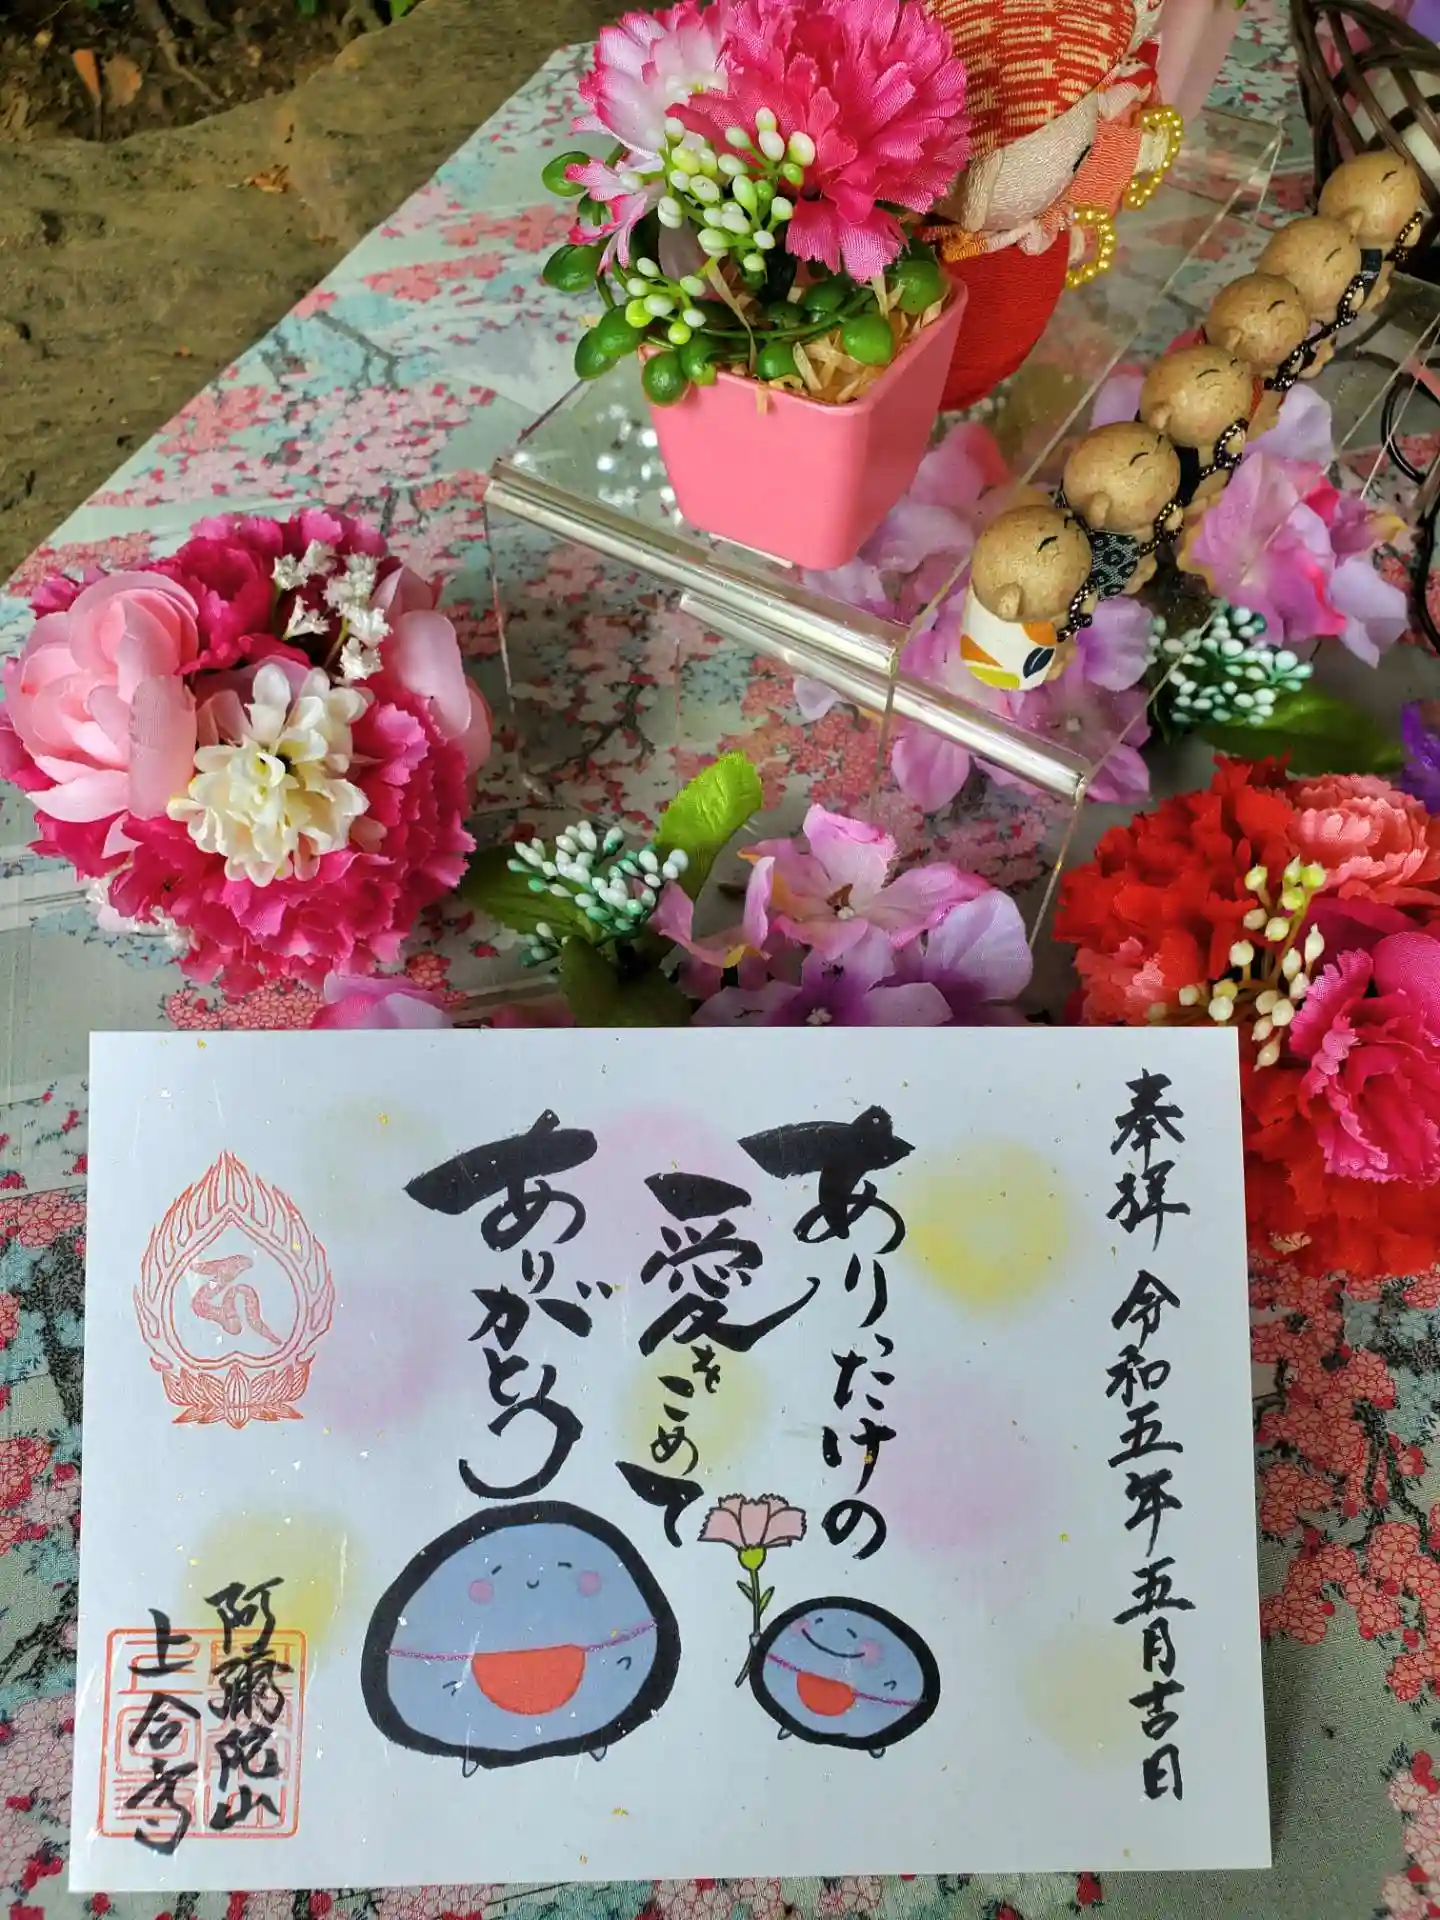 奉拝 令和五年五月吉日
ありったけの
愛をこめて
ありがとう
阿彌陀山
上合寺